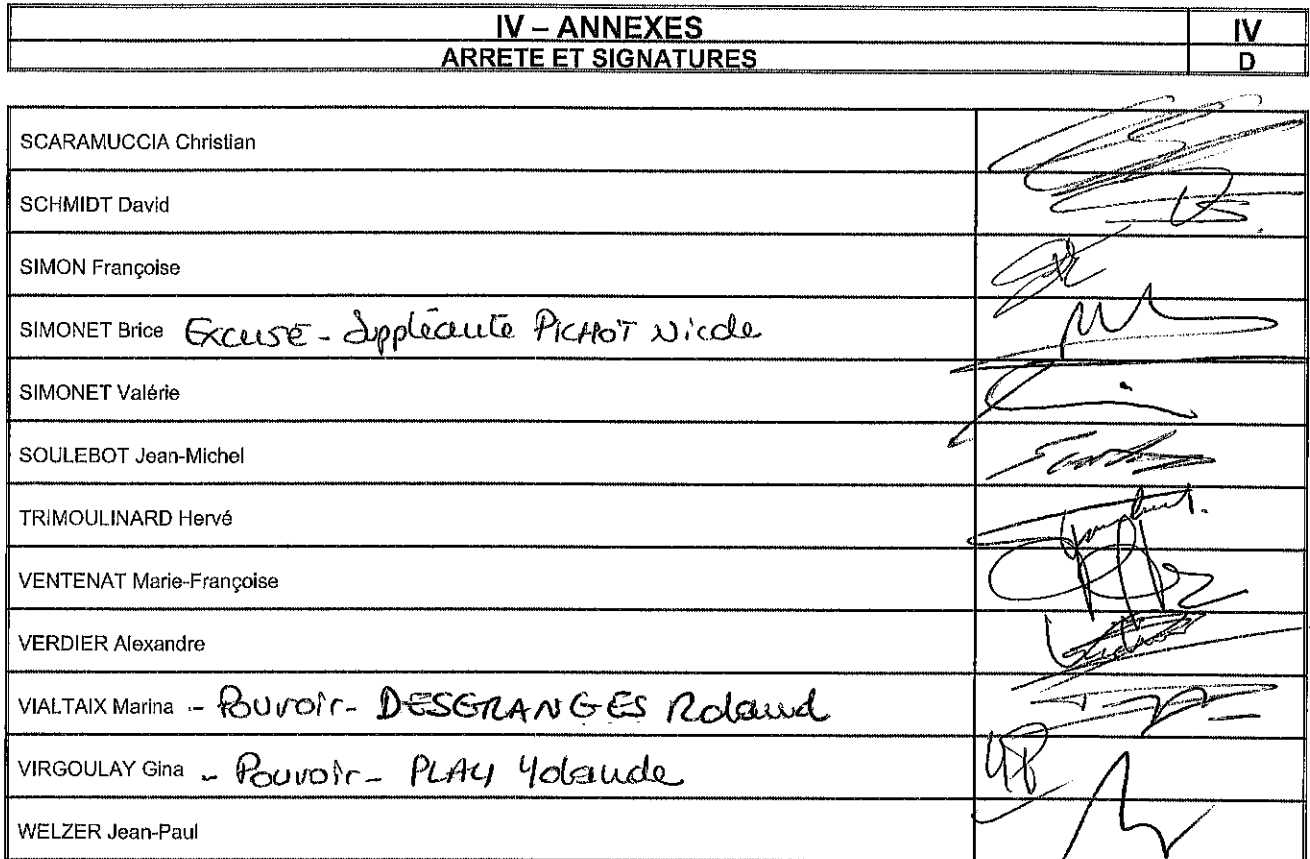 IV – ANNEXES
IV
ARRETE ET SIGNATURES
D
SCARAMUCCIA Christian
SCHMIDT David
SIMON Françoise
SIMONET Brice Excusé - Suppléante PICHOT Nicole
SIMONET Valérie
SOULEBOT Jean-Michel
TRIMOULINARD Hervé
VENTENAT Marie-Françoise
VERDIER Alexandre
VIALTAIX Marina - Pouvoir - DESGRANGES Roland
VIRGOULAY Gina - Pouvoir - PLAY Yolande
YP
WELZER Jean-Paul